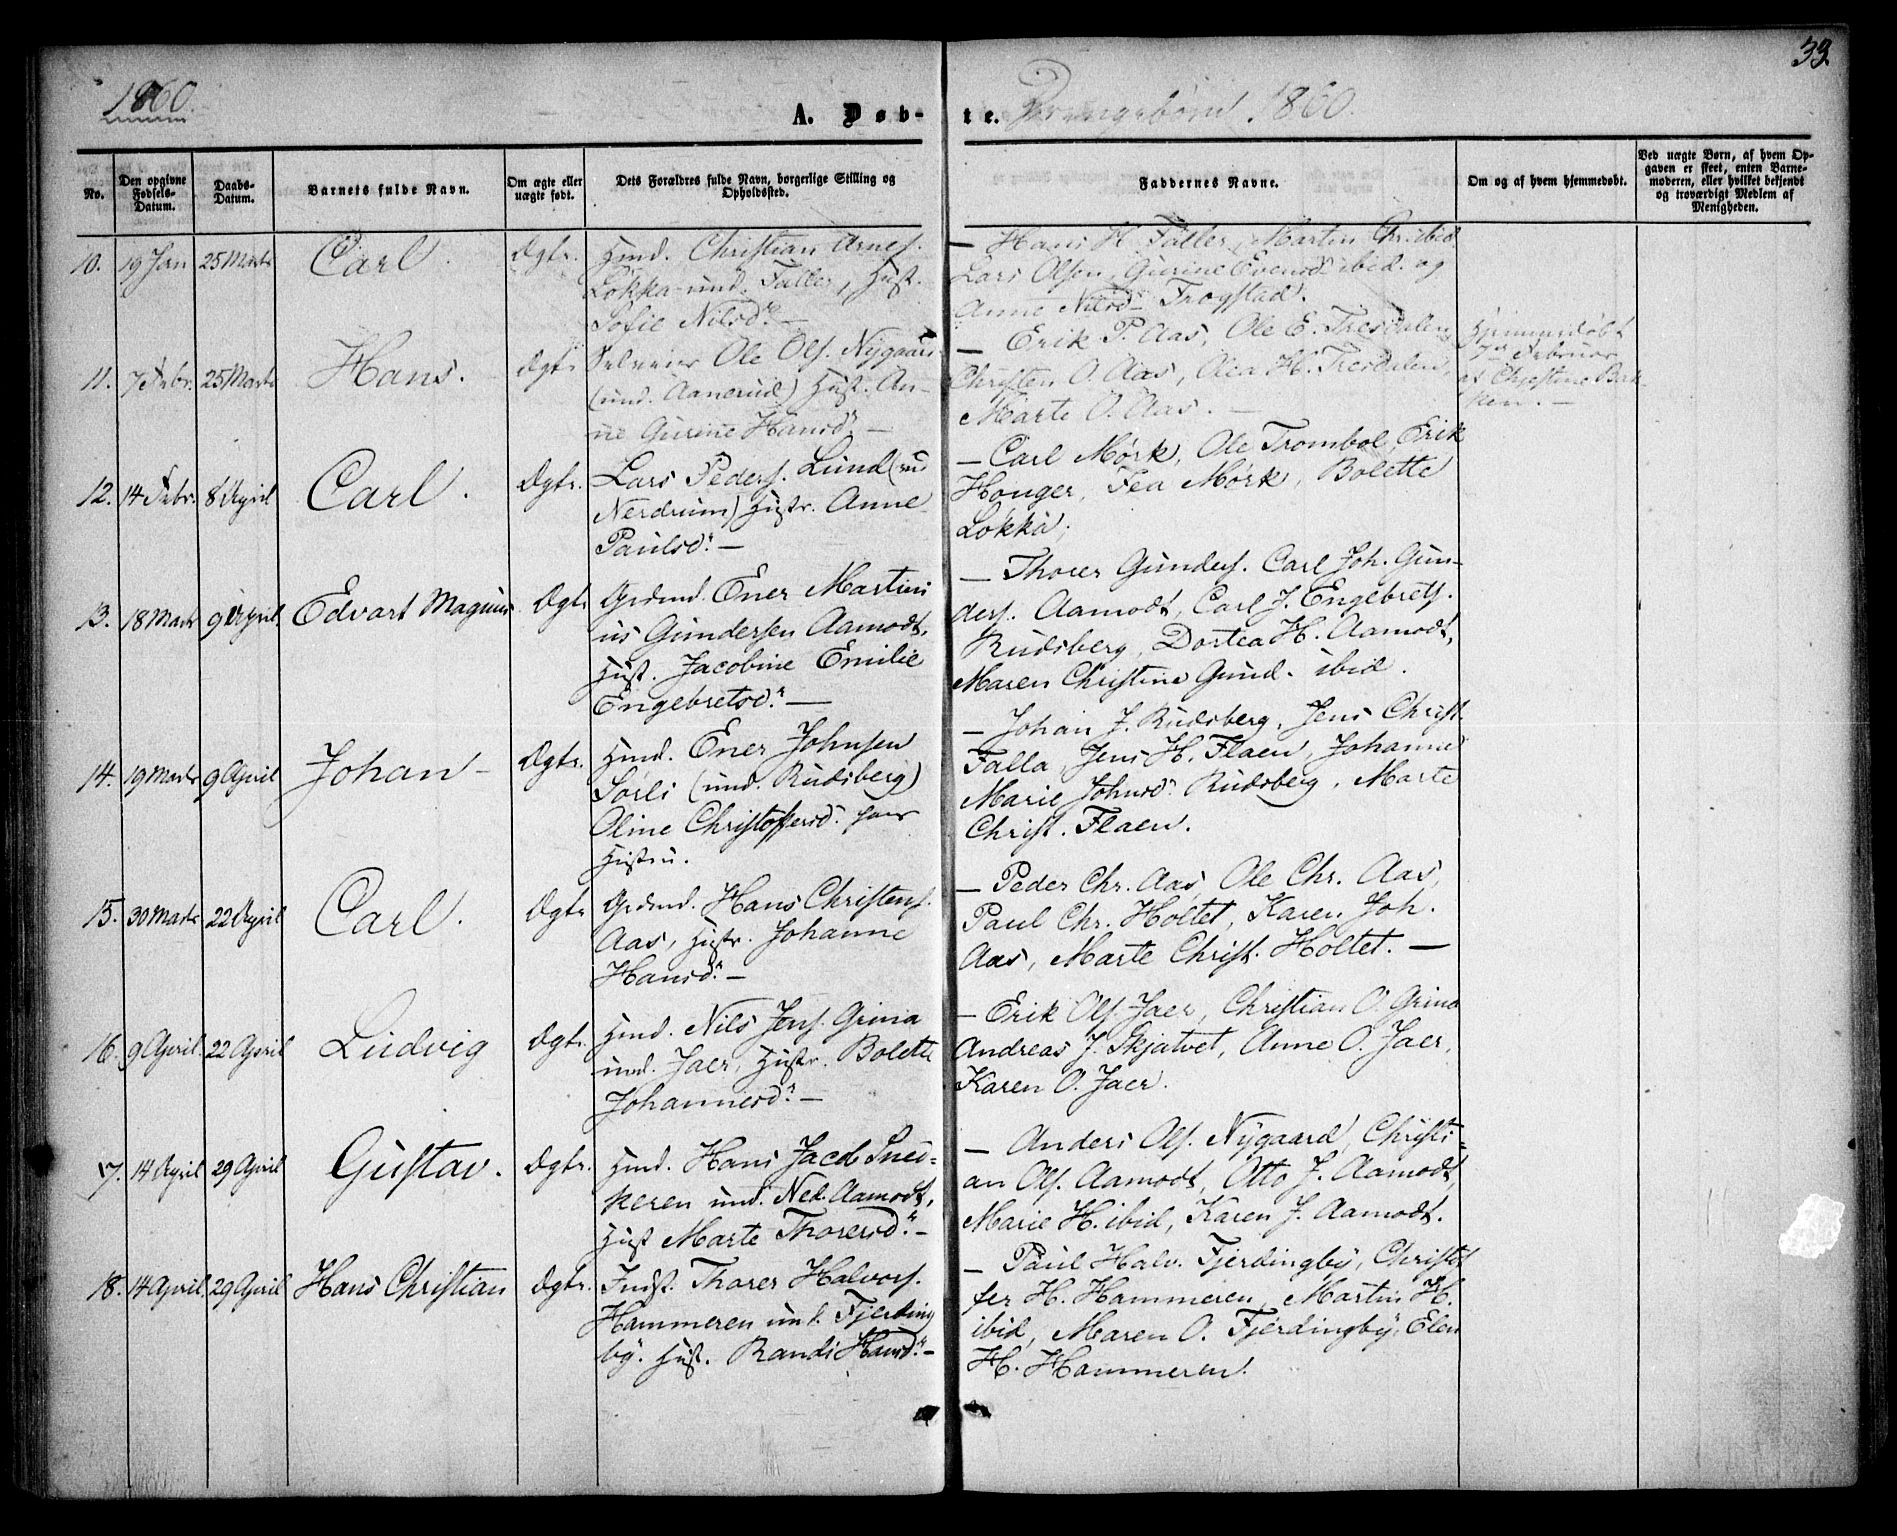 39.
1860.
A. Døb-
te. Drengebørn 1860.
No.
Den opgivne Fødsels-Datum.
Daabs-Datum.
Barnets fulde Navn.
Om ægte eller uægte født.
Dets Forældres fulde Navn, borgerlige Stilling og Opholdssted.
Faddernes Navne.
Om og af hvem hjemmedøbt.
Ved uægte Børn, af hvem Op-
gaven er skeet, enten Barne-
moderen, eller hvilket bekjendt
og troværdigt Medlem af
Menigheden.
10. 19 Jan 25 Marts Carl. Ægte. Huusmd. Christian Arnes.
Løkka und. Faller, Hust.
Sofie Nilsd. —
— Hans H. Faller, Martin Chr. ibid
Lars Olsen, Gurine Evensd. ibid. og
Anne Nilsd. Trogstad.
11. 7 Febr. 25 Marts Hans. Ægte Selveier Ole Ols. Nygaard
(und. Aanerud) Hust. An-
ne Gurine Hansd. —
— Erik P. Aas, Ole E. Tresdalen,
Christen O. Aas, Olea H. Tresdalen,
Marte O. Aas. —
Hjemmedøbt
7de Februar
af Chrestine Bak-
ken. —
12. 14 Febr. 8 April Carl. Ægte. Lars Peders. Lund (und
Nerdrum) Hustr. Anne
Paulsd. —
— Carl Mørk, Ole Trombol, Erik
Houger, Fea Mørk, Bolette
Løkka,
13. 18 Marts 9 April. Edvart Magnus Ægte Grdmd. Ener Martini
us Gundersen Aamodt,
Hust. Jacobine Emilie
Engebretsd. —
— Thorer Gunders. Carl Joh. Gun-
ders. Aamodt, Carl J. Engebrets.
Rudsberg, Dortea H. Aamodt,
Maren Christine Gund. ibid.
14. 19 Marts 9 April Johan — Ægte. Hmd. Ener Johnsen
Sørli (und. Rudsberg)
Oline Christoffersd. hans
Hustru.
— Johan J. Rudsberg, Jens Christ.
Falla, Jens H. Flaen, Johanne
Marie Johnsd. Rudsberg, Marte
Christ. Flaen.
15. 30 Marts 22 April Carl. Ægte Grdmd. Hans Christens.
Aas, Hustr. Johanne
Hansd. —
— Peder Chr. Aas, Ole Chr. Aas,
Paul Chr. Holtet, Karen Joh.
Aas, Marte Christ. Holtet. —
16. 9 April. 22 April Ludvig Ægte. Hmd. Nils Jens. Grina
und. Jaer, Hustr. Bolette
Johannesd. —
— Erik Ols. Jaer, Christian O. Grina
Andreas J. Skjatvet, Anne O. Jaer,
Karen O. Jaer.
17. 14 April 29 April Gustav. Ægte. Hmd. Hans Jacob Sned-
keren und. Ned. Aamodt,
Hust Marte Thorersd. —
— Anders Ols. Nygaard, Christi-
an Ols. Aamodt, Otto J. Aamodt,
Marie H. ibid, Karen J. Aamodt.
18. 14 April 29 April Hans Christian Ægte. Indst. Thorer Halvors.
Hammeren und. Fjerding
by. Hust. Randi Hansd. —
— Paul Halv. Fjerdingby, Christof
fer H. Hammeren, Martin H.
ibid, Maren O. Fjerdingby, Elen
H. Hammeren.